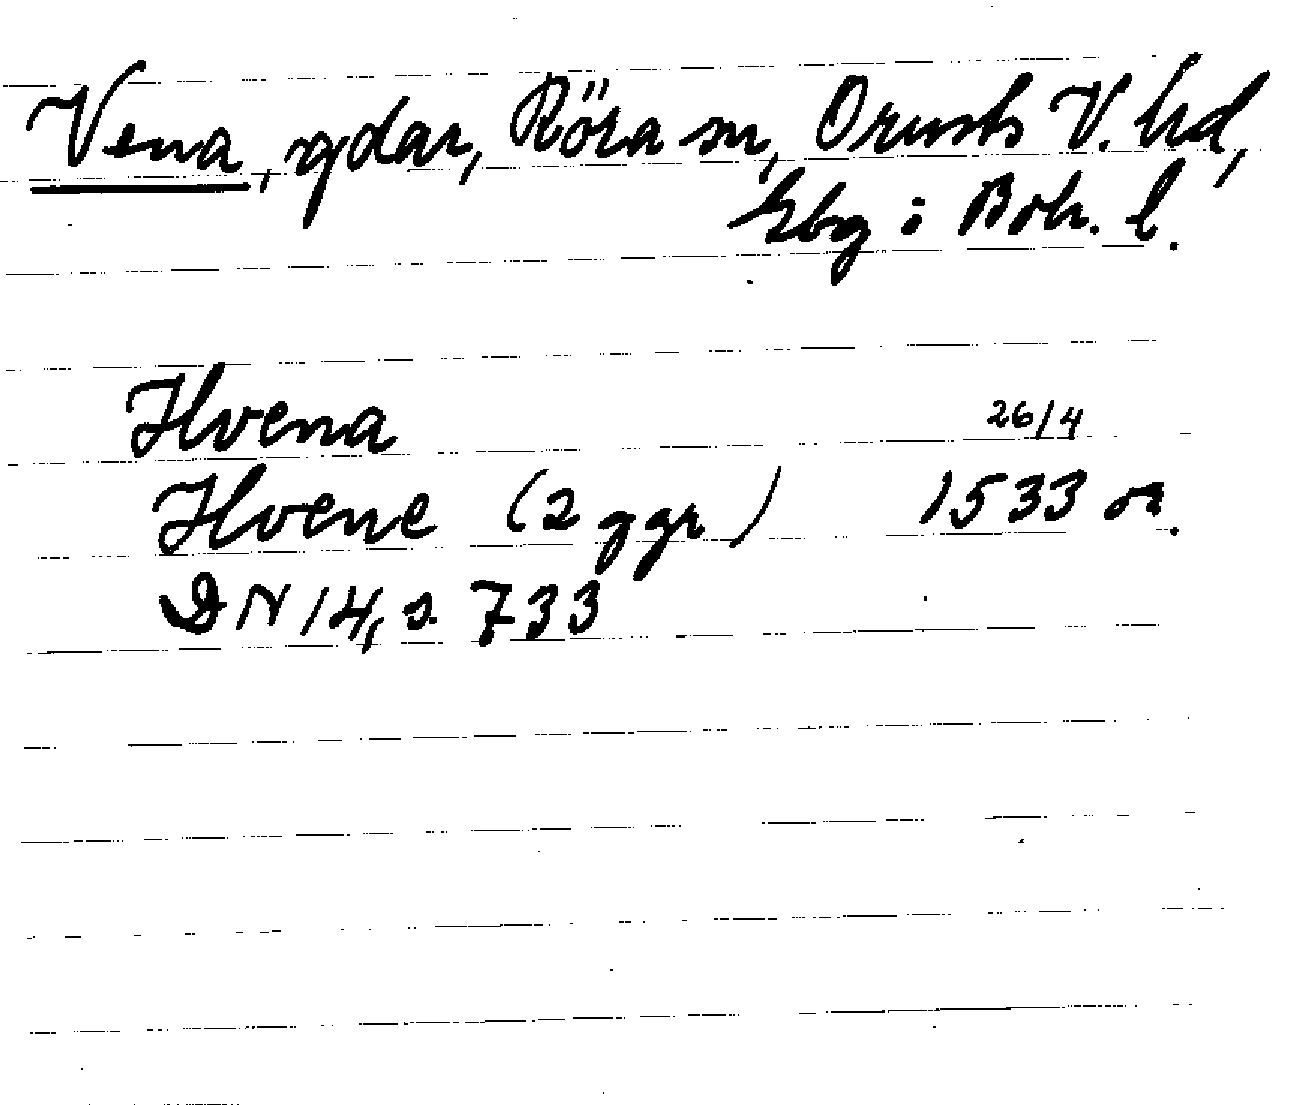 Vena, gdar, Röra sn, Orusts V. hd,
Gbg i Boh. l.
Hvena 26/4
Hvene (2 ggr) 1533 or.
DN 14, s. 733